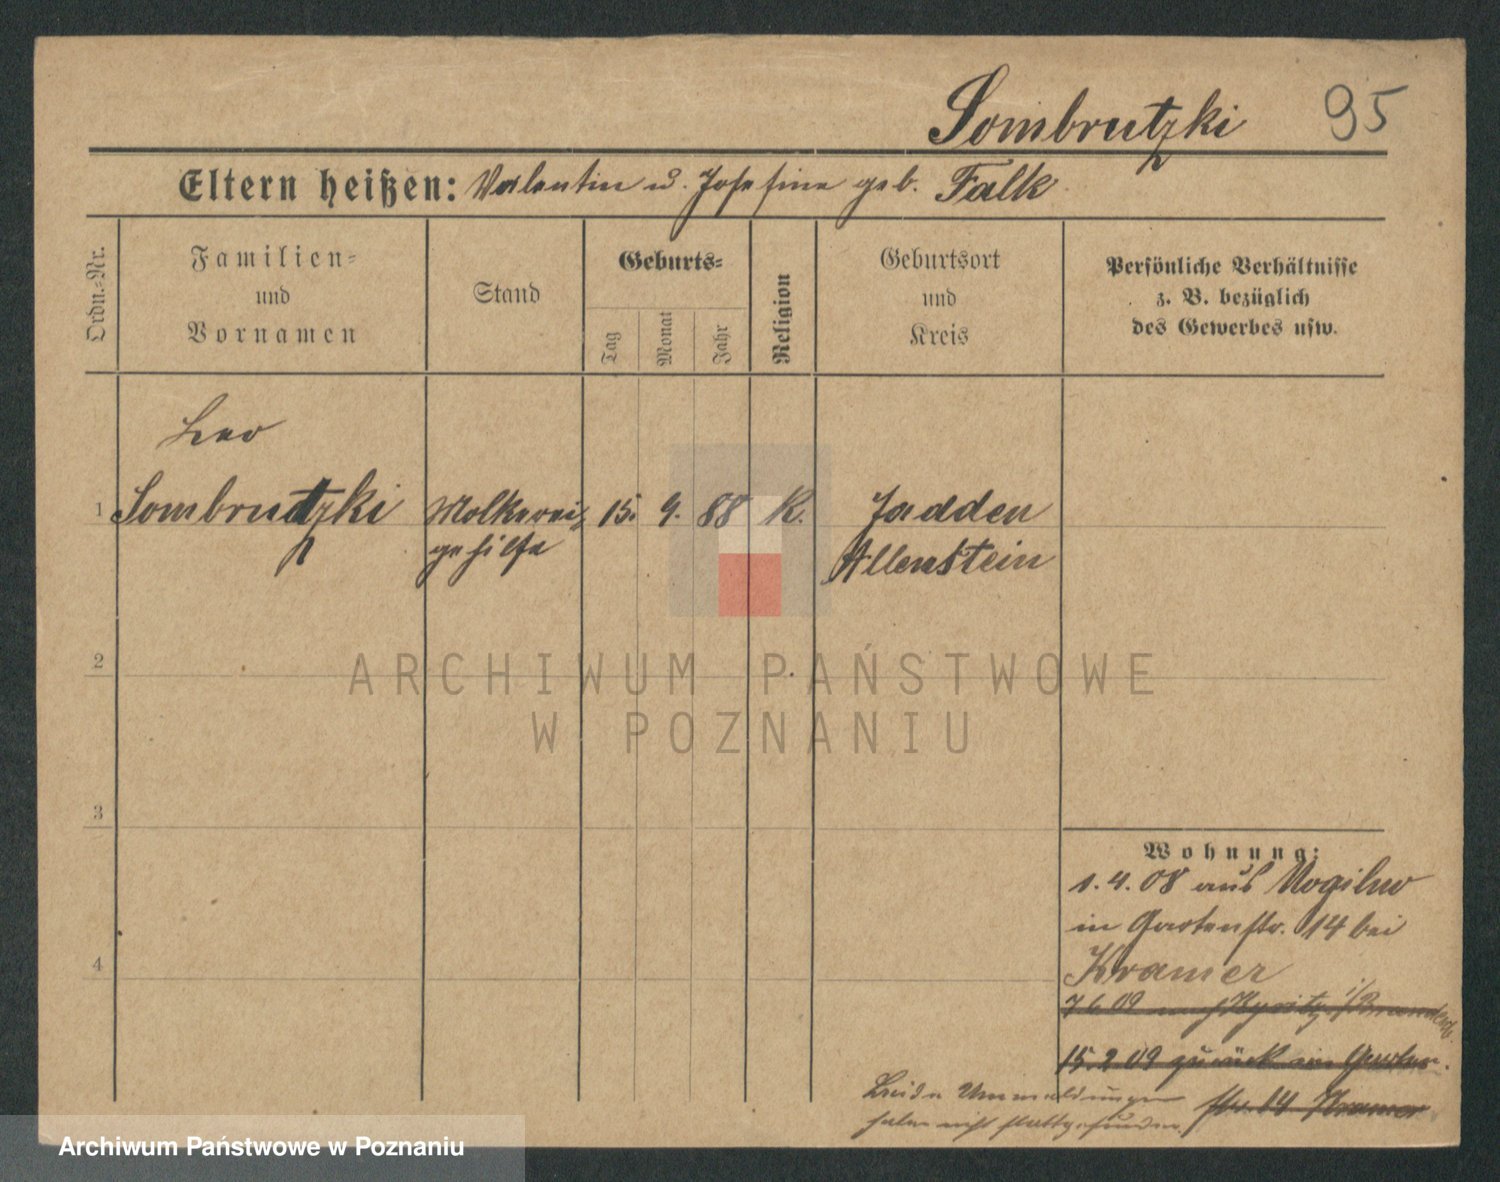 Sombrutzki 95
Eltern heißen: Valentin u. Josefine geb. Falk
Ordn.-Nr.
Familien-
und
Vornamen
Stand
Geburts-
Tag
Monat
Jahr
Religion
Geburtsort
und
Kreis
Persönliche Verhältnisse
z. B. bezüglich
des Gewerbes usw.
Leo
1 Sombrutzki Molkerei- 15. 9. 88 K. Jadden
gehilfe Allenstein
2
3
4
Wohnung:
1.4.08 aus Mogilno
in Gartenstr. 14 bei
Kramer
09 nach Kyritz i/Brandenb.
15.2.09 zurück in Garten-
str. 14 Kramer
Beide Ummeldungen
haben nicht stattgefunden.
ARCHIWUM PAŃSTWOWE
W POZNANIU
Archiwum Państwowe w Poznaniu